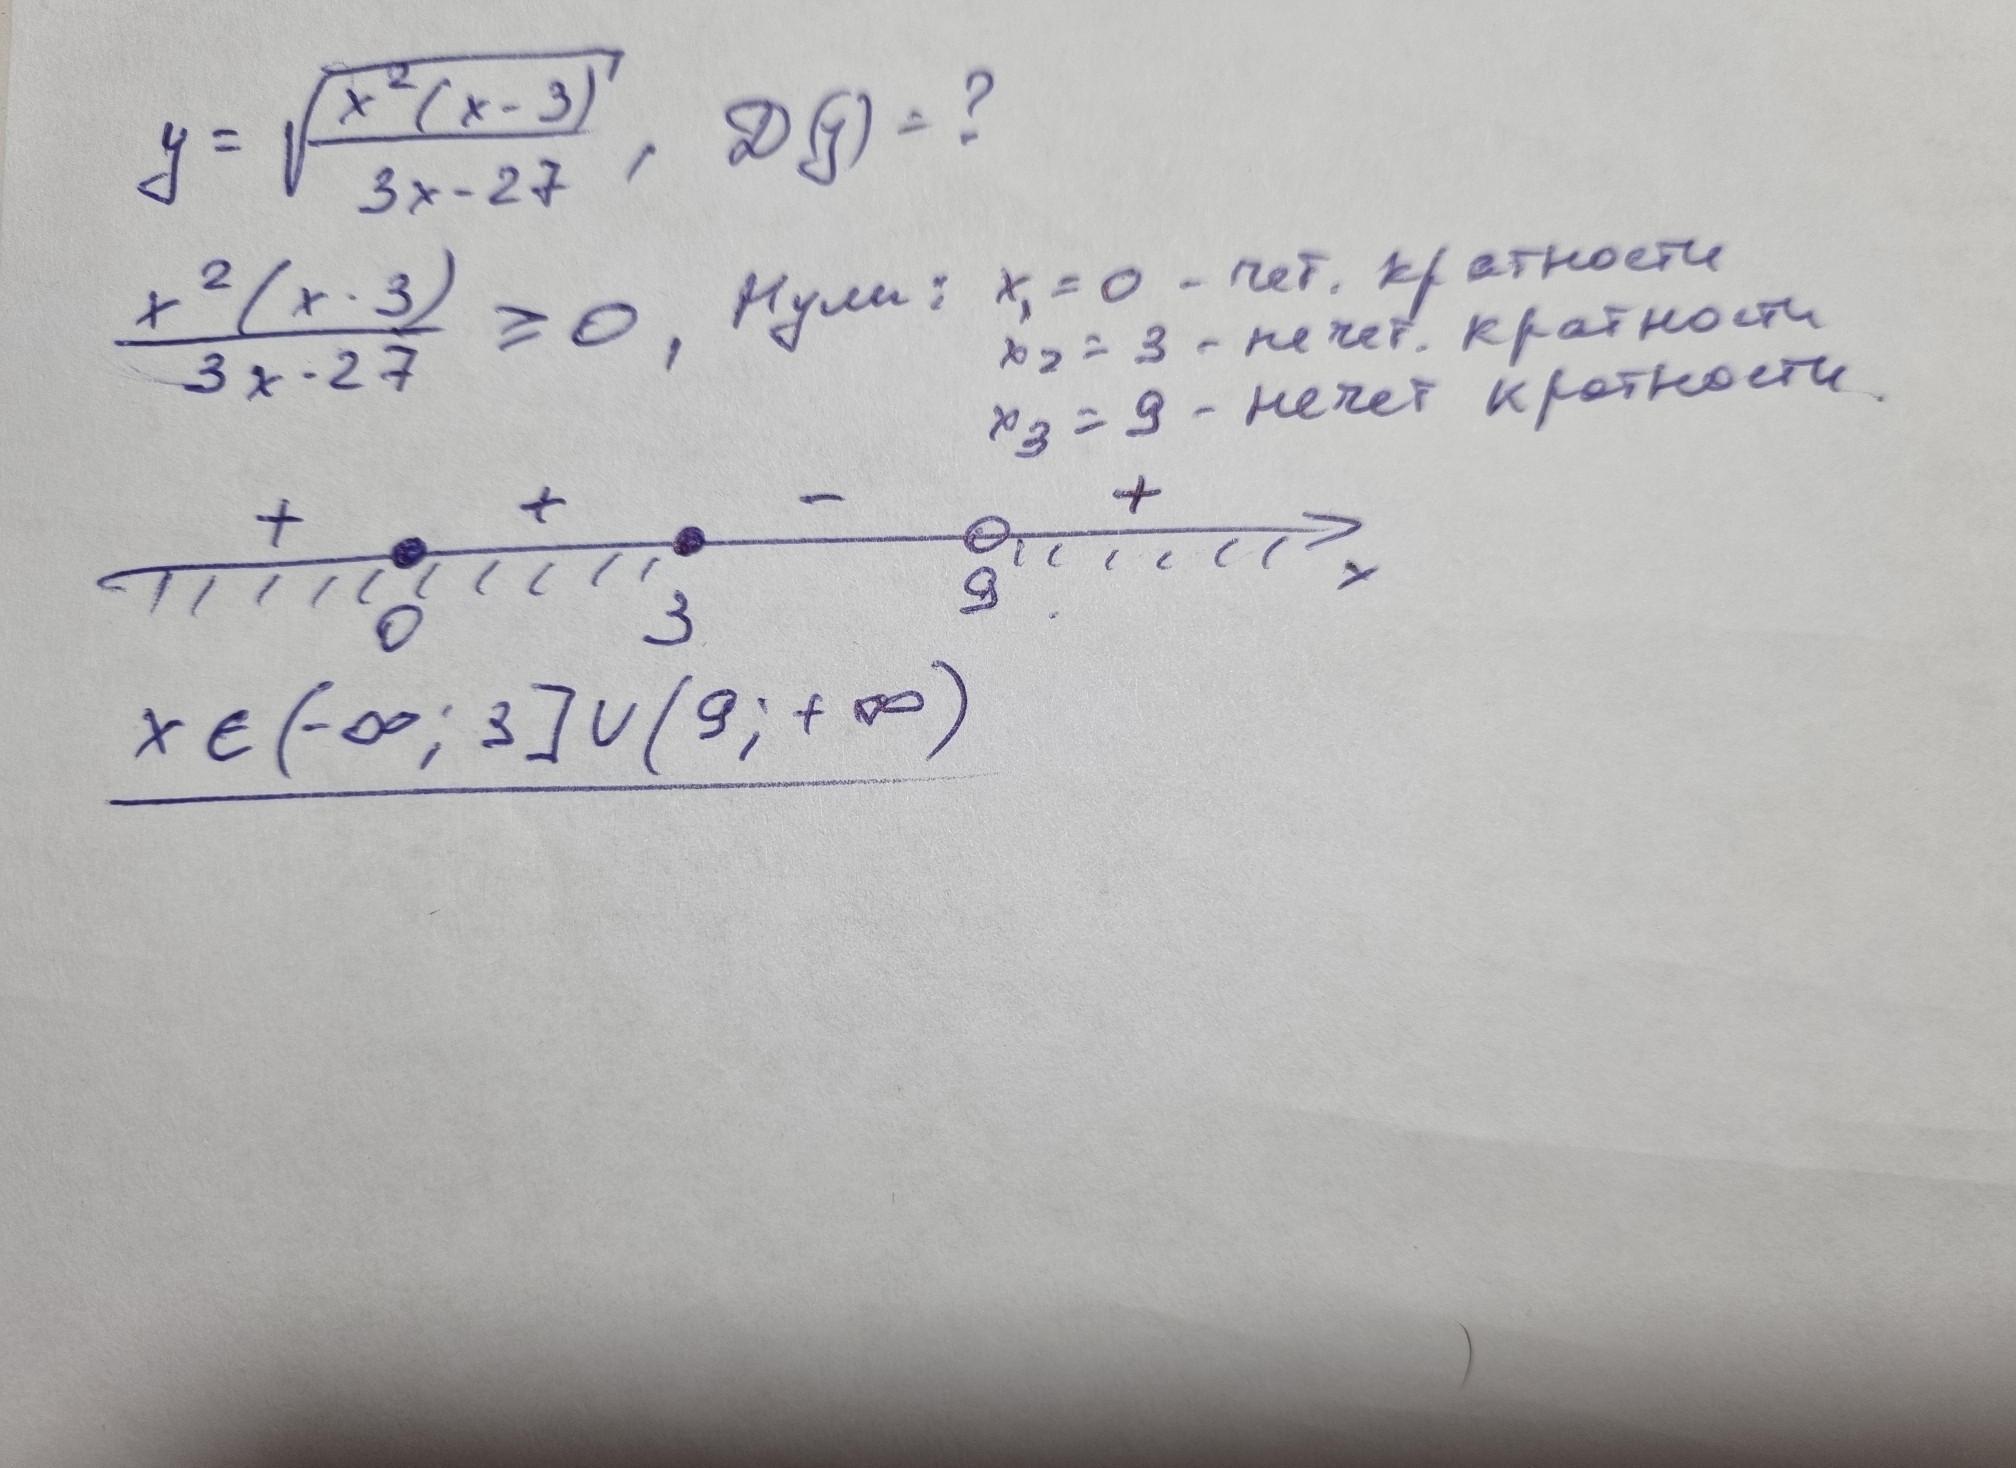 y = √(x²(x-3)/(3x-27)), D(y) = ?
x²(x-3)/(3x-27) ≥ 0, Нули: x₁ = 0 - чет. кратности
x₂ = 3 - нечет. кратности
x₃ = 9 - нечет кратности.
+ + - +
0 3 9 x
x ∈ (-∞; 3] ∪ (9; +∞)